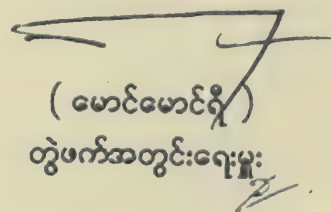 ( မောင်မောင်ရီ )
တွဲဖက်အတွင်းရေးမှူး